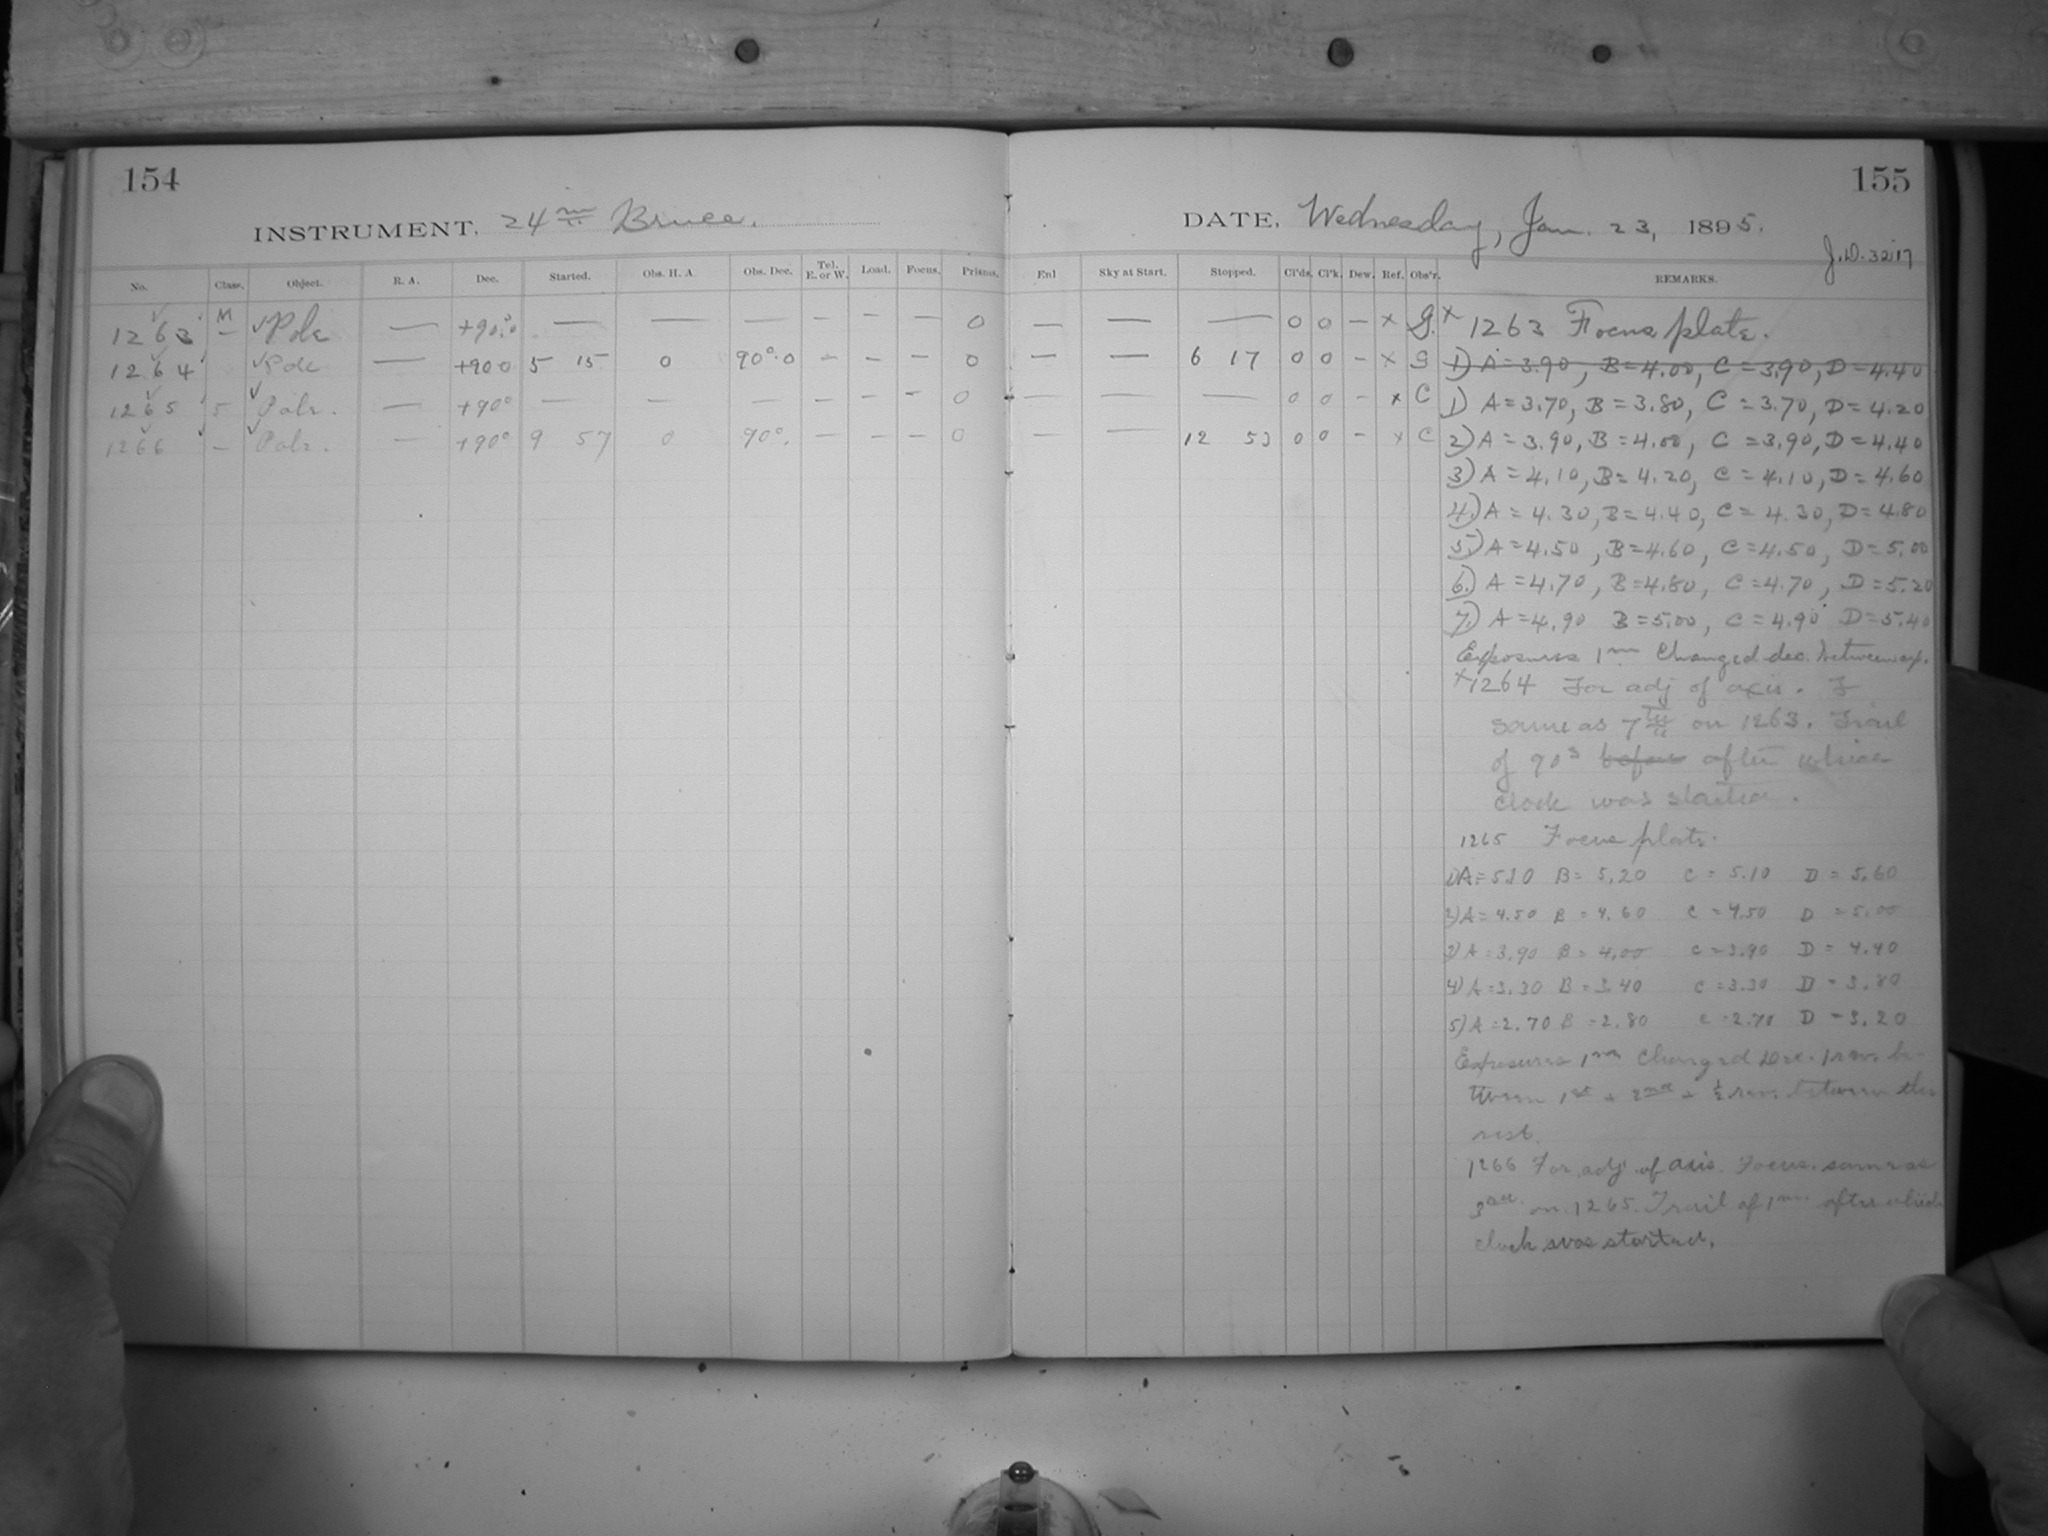 154
INSTRUMENT. 24 in. Bruce.
No. Class. Object. R. A. Dec. Started. Obs. H. A. Obs. Dec. Tel. E. or W. Load. Focus. Prisms.
1263 M — ✓Pole — +90.°0 — — — — — — 0
1264 ✓Pole — +90 0 5 15 0 90°.0 - - - 0
1265 5 ✓Polr. — +90° — — — — — - 0
1266 — ✓Polr. — +90° 9 57 0 90°. — — — 0
155
DATE, Wednesday, Jan. 23, 1895.
J.D. 3217
Enl Sky at Start. Stopped. Cl'ds. Cl'k. Dew. Ref. Obs'r. REMARKS.
— — — 0 0 — x G. x 1263 Focus plate.
— — 6 17 0 0 — x G 1) A=3.90, B=4.00, C=3.90, D=4.40
— — — 0 0 - x C 1) A=3.70, B=3.80, C=3.70, D=4.20
— — 12 53 0 0 - x C 2) A=3.90, B=4.00, C=3.90, D=4.40
3) A=4.10, B=4.20, C=4.10, D=4.60
4.) A=4.30, B=4.40, C=4.30, D=4.80
5.) A=4.50, B=4.60, C=4.50, D=5.00
6.) A=4.70, B=4.80, C=4.70, D=5.20
7.) A=4.90 B=5.00, C=4.90 D=5.40
Exposures 1m Changed dec. between exp.
x1264 For adj of axis. F
same as 7th on 1263. Trail
of 90s before after which
clock was started.
1265 Focus plate.
1) A=5.10 B=5.20 C=5.10 D=5.60
2) A=4.50 B=4.60 C=4.50 D=5.00
3) A=3.90 B=4.00 C=3.90 D=4.40
4) A=3.30 B=3.40 C=3.30 D=3.80
5) A=2.70 B=2.80 C=2.70 D=3.20
Exposures 1m Changed Dec. 1 rev. be-
tween 1st + 2nd + ½ rev. between the
rest.
1266 For adj of axis. Focus same as
3rd on 1265. Trail of 1m after which
clock was started.